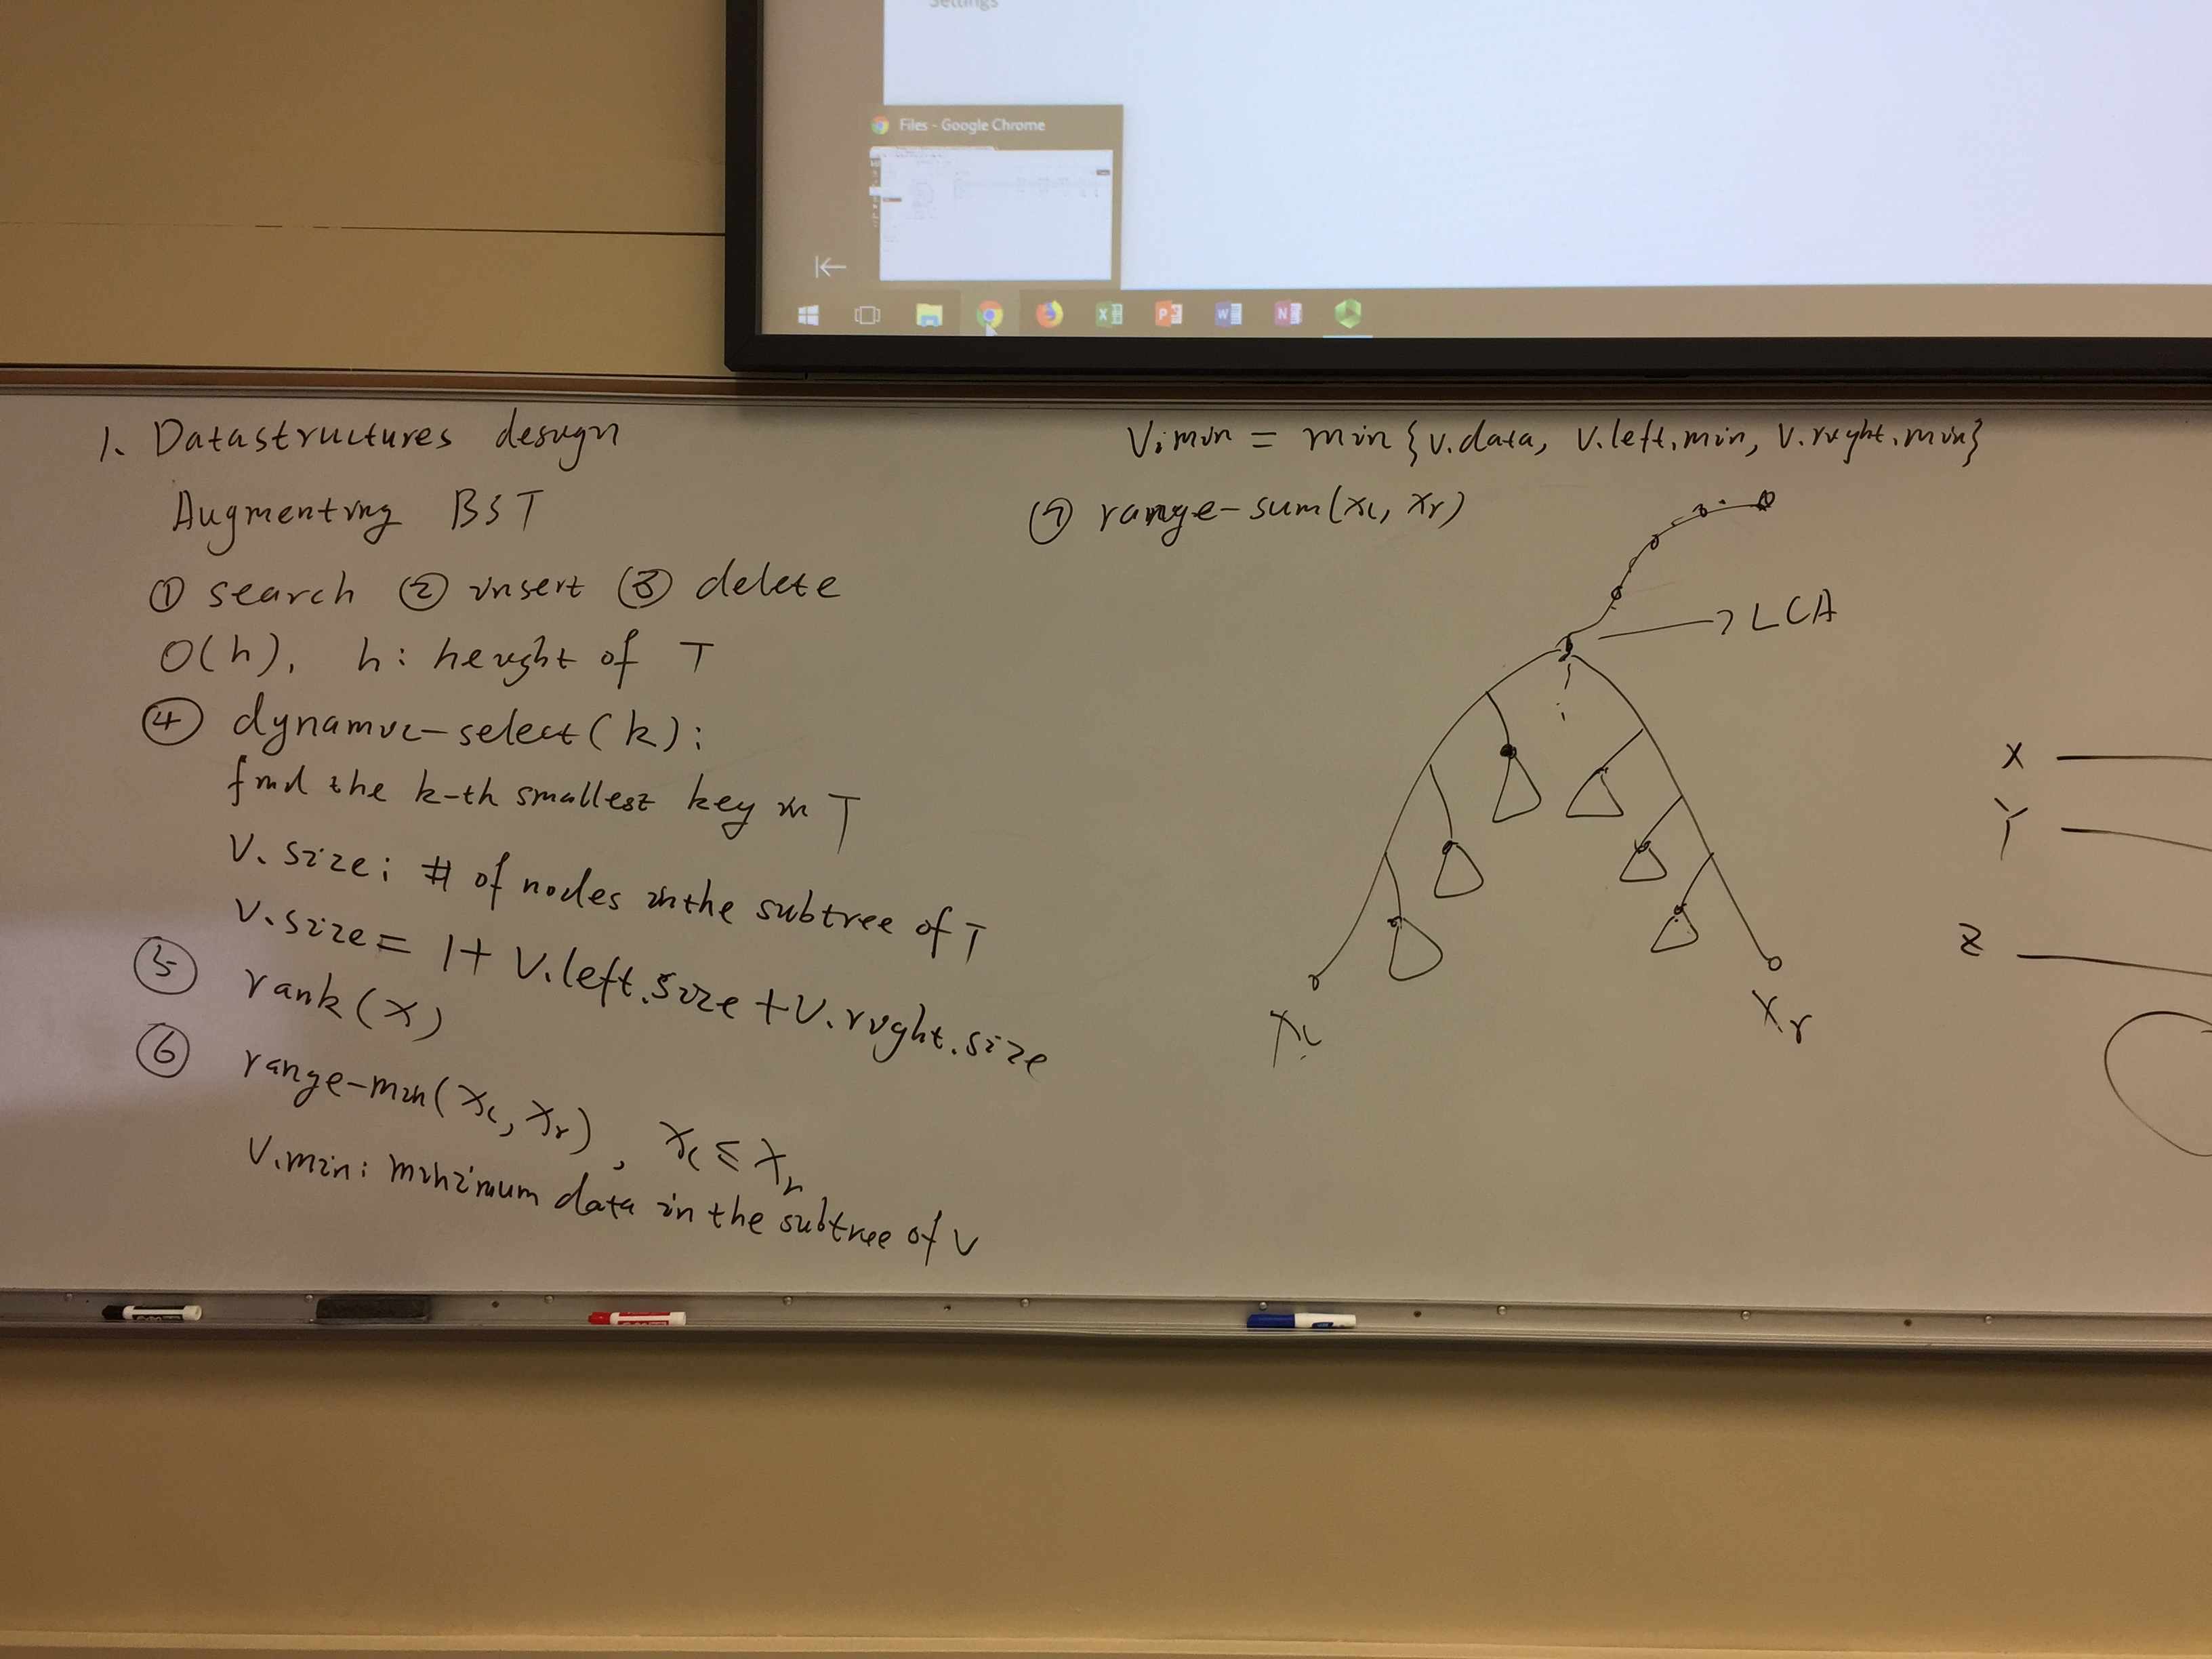 Settings
Files - Google Chrome
1. Datastructures design
Augmenting BST
① search ② insert ③ delete
O(h), h: height of T
④ dynamic-select(k):
find the k-th smallest key in T
V.size: # of nodes in the subtree of T
V.size = 1+ V.left.size + V.right.size
⑤ rank(x)
⑥ range-min(xₗ, xᵣ), xₗ ≤ xᵣ
V.min: minimum data in the subtree of V
V.min = min {v.data, v.left.min, v.right.min}
⑦ range-sum(xₗ, xᵣ)
LCA
xₗ
xᵣ
X
Y
Z